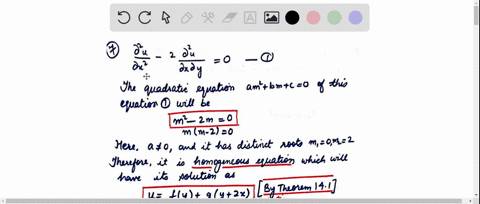 ⑦ ∂²u/∂x² - 2 ∂²u/∂x∂y = 0 — ①
The quadratic equation am²+bm+c=0 of this
equation ① will be
m²-2m=0
m(m-2)=0
Here, a≠0, and it has distinct roots m₁=0, m₂=2
Therefore, it is homogeneous equation which will
have its solution as
u= f(y)+ g(y+2x) [By Theorem 14.1]